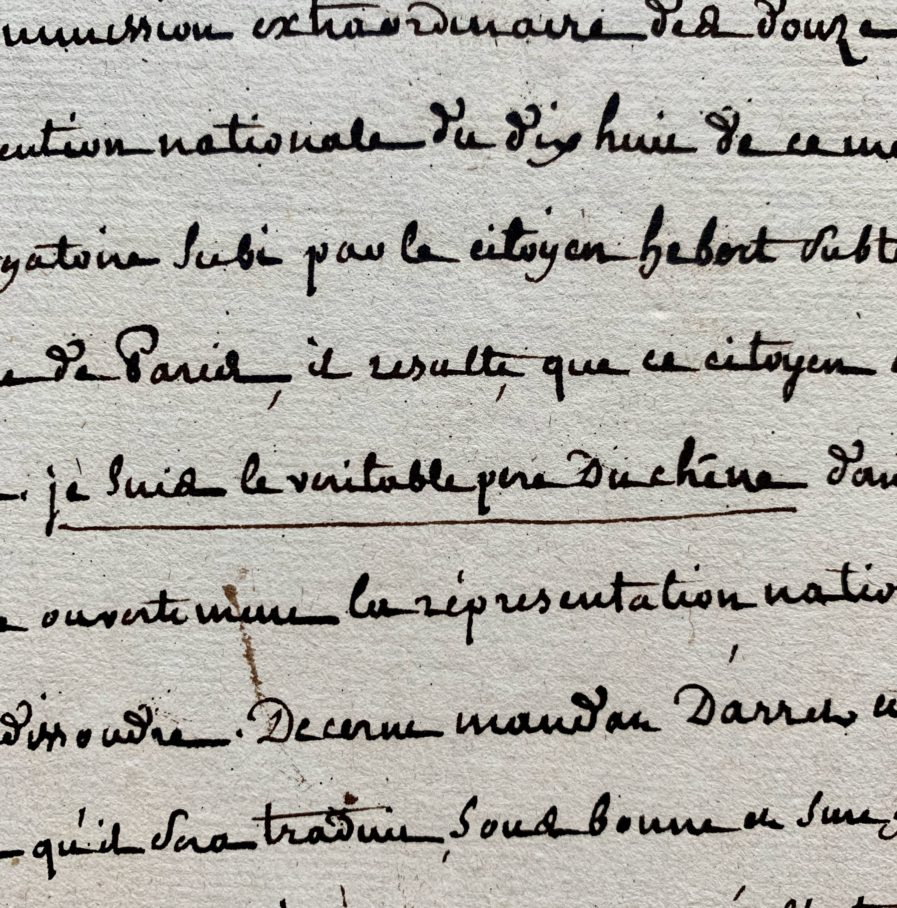 mmission extraordinaire des douze
vention nationale du dix huit de ce mo
gatoire subi par le citoyen hebert subt
e de Paris, il resulte, que ce citoyen
je suis le veritable pere Duchêne dan
e ouvertement la répresentation natio
dissoudre. Decerne mandat D'arret
qu'il sera traduit, sous bonne et sure